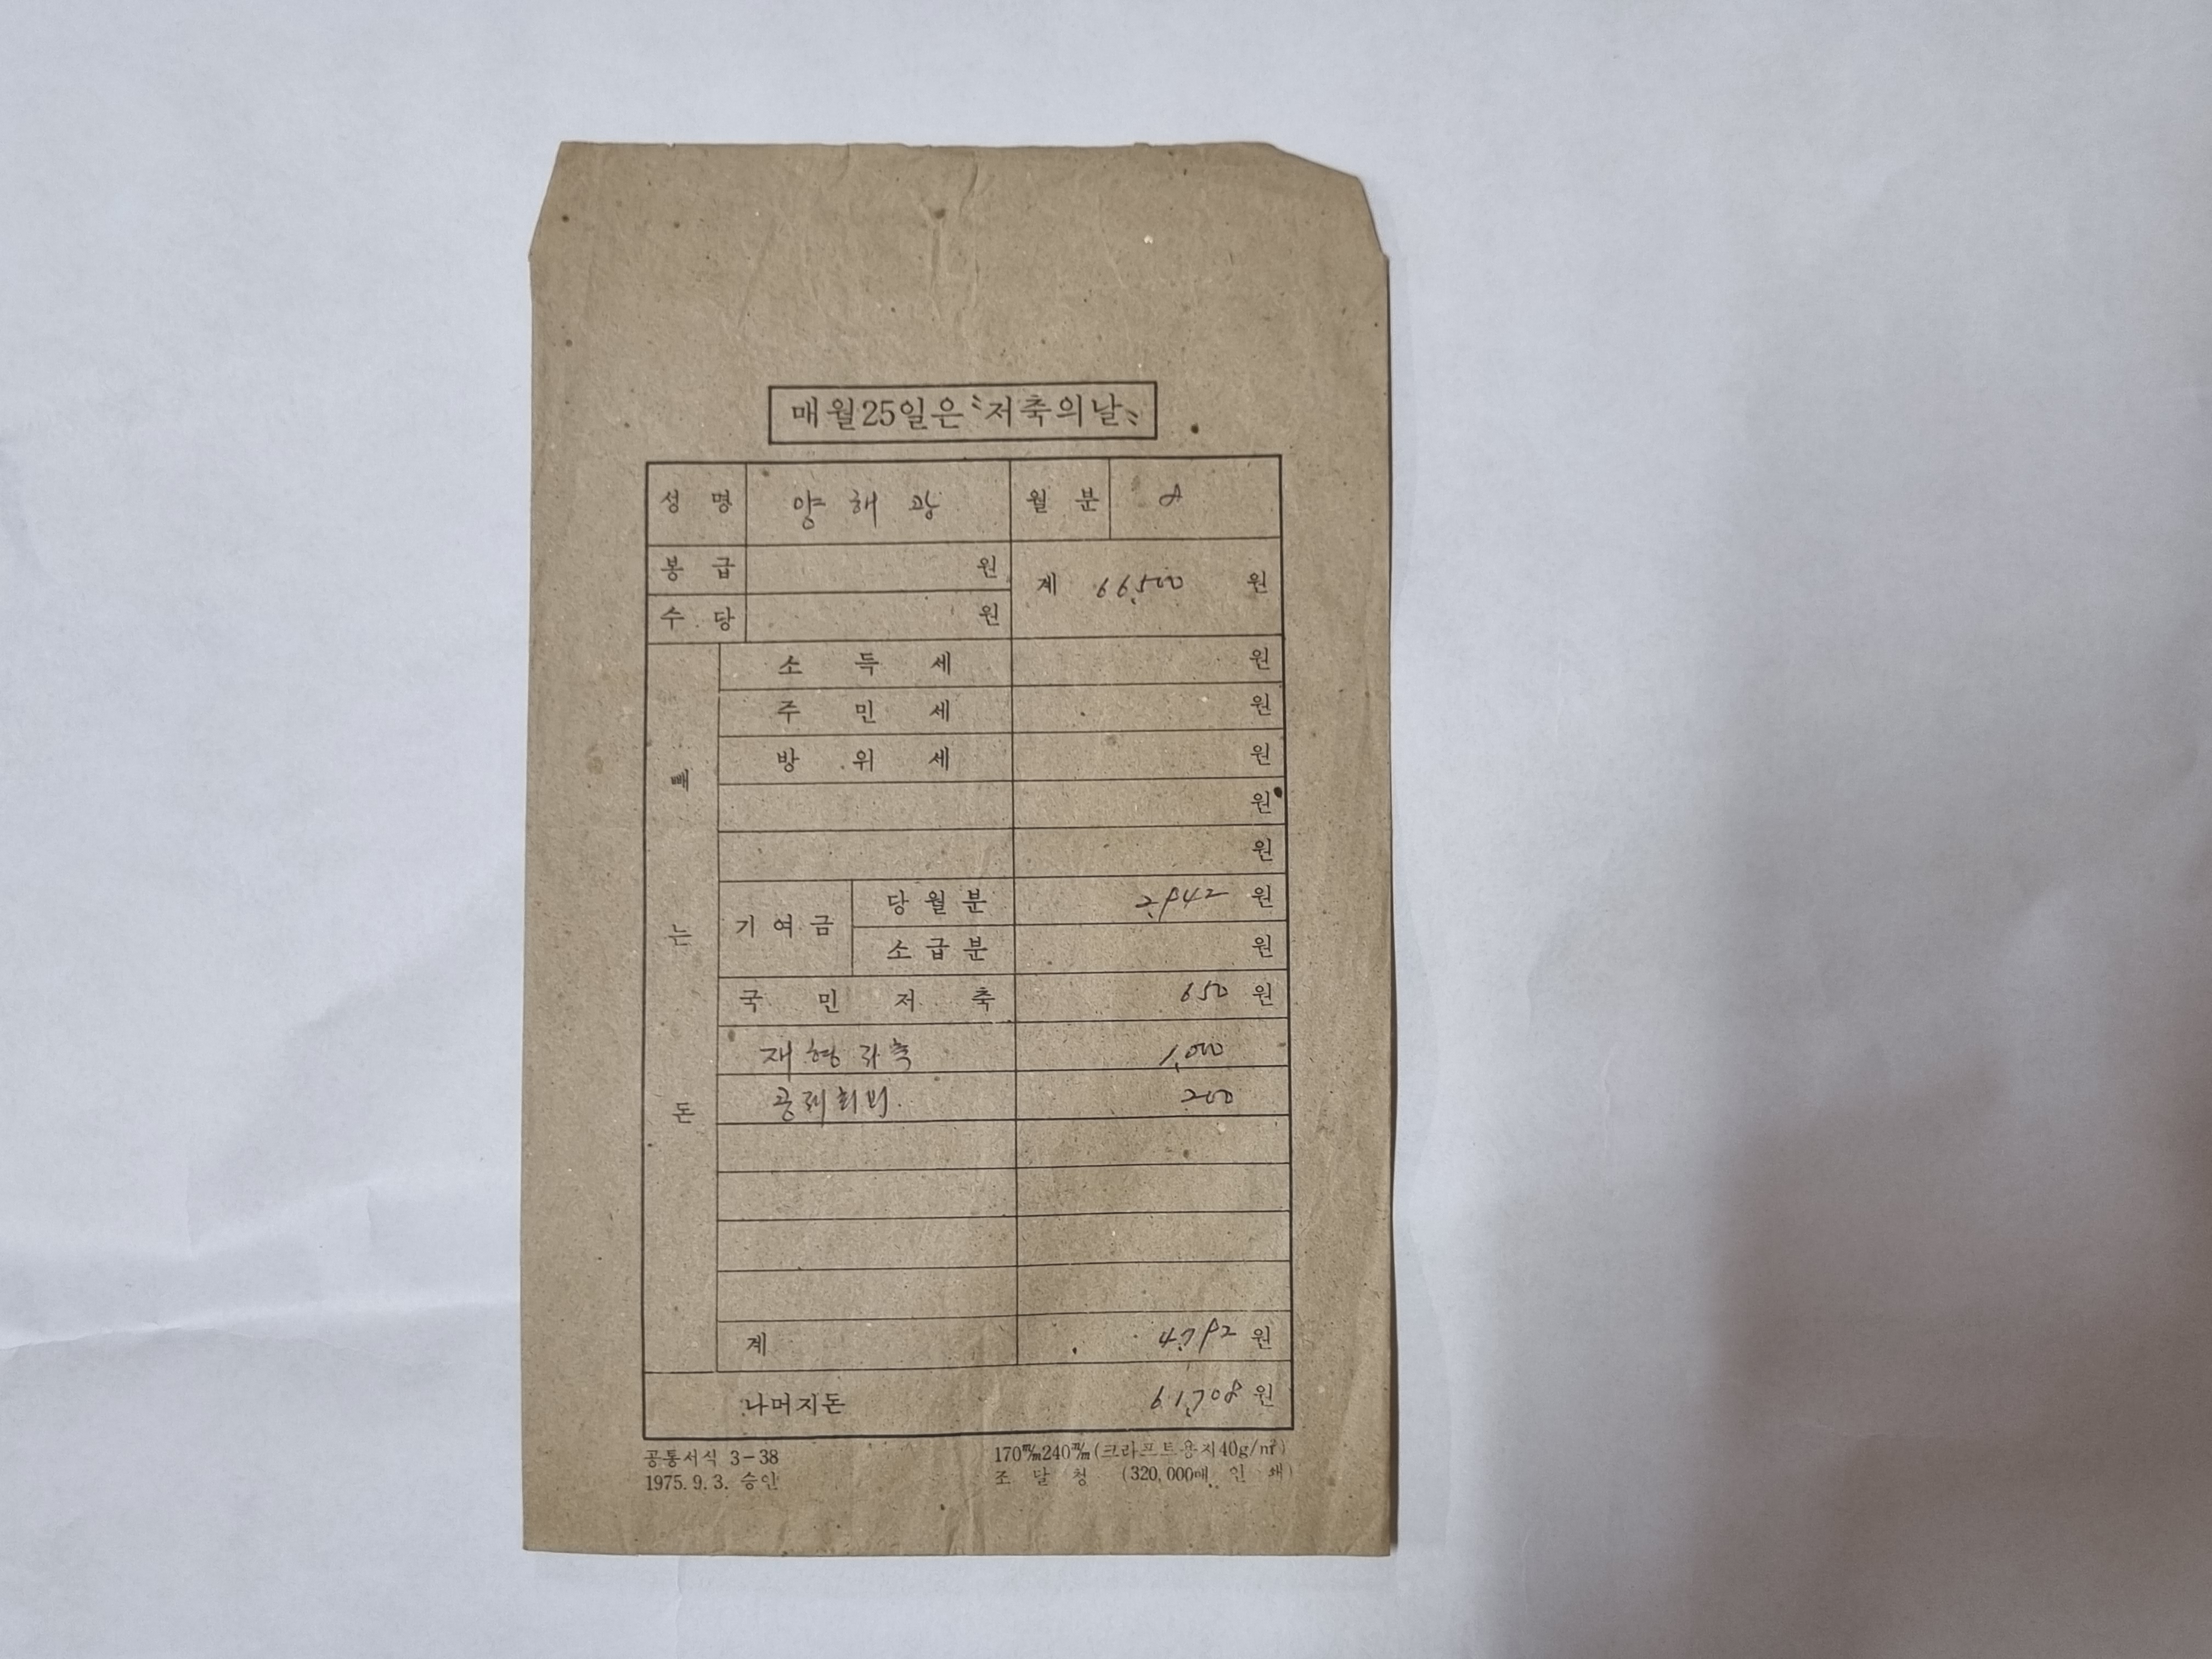 매월25일은 〝저축의날〞
성 명 양 해 광 월 분 8
봉 급 원 계 66,500 원
수 당 원
빼 는 돈
소 득 세 원
주 민 세 원
방 위 세 원
원
원
기 여 금 당 월 분 2,942 원
소 급 분 원
국 민 저 축 650 원
재형저축 1,000
공제회비. 200
계 4,792 원
나머지돈 61,708 원
공통서식 3-38 170㎜240㎜(크라프트용지40g/㎡)
1975. 9. 3. 승인 조 달 청 (320,000매 인 쇄)